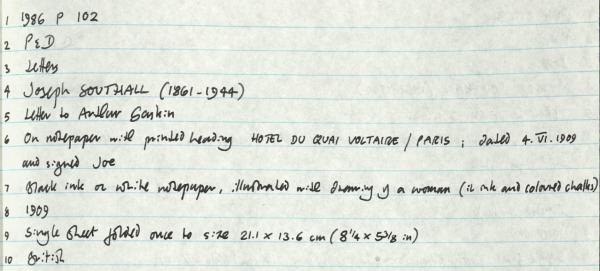 1 1986 P 102
2 P&D
3 Letters
4 Joseph SOUTHALL (1861-1944)
5 Letter to Arthur Gaskin
6 On notepaper with printed heading HOTEL DU QUAI VOLTAIRE / PARIS ; dated 4.VI.1909
and signed Joe
7 Black ink on white notepaper, illustrated with drawing of a woman (in ink and coloured chalks)
8 1909
9 Single sheet folded once to size 21.1 x 13.6 cm (8¼ x 5⅜ in)
10 British